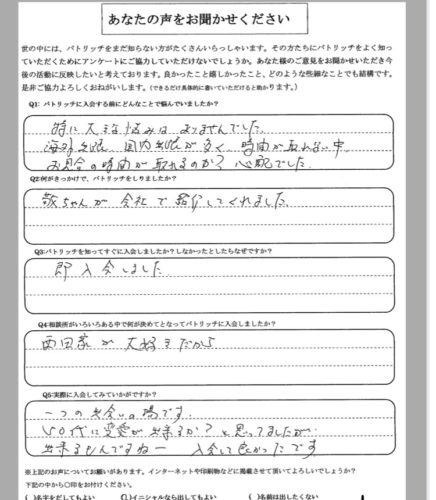 あなたの声をお聞かせください
世の中には、パトリッチをまだ知らない方がたくさんいらっしゃいます。その方たちにパトリッチをよく知っ
ていただくためにアンケートにご協力していただけないでしょうか。あなた様のご意見をお聞かせいただき今
後の活動に反映したいと考えております。良かったこと嬉しかったこと、どのような些細なことでも結構です。
是非ご協力よろしくおねがいします。(できるだけ具体的に書いていただけると助かります。)
Q1: パトリッチに入会する前にどんなことで悩んでいましたか?
特に大きな悩みはありませんでした。
海外出張、国内出張が多く、時間が取れない中
お見合の時間が取れるのか? 心配でした。
Q2:何がきっかけで、パトリッチをしりましたか?
敬ちゃんが会社で紹介してくれました。
Q3:パトリッチを知ってすぐに入会しましたか?しなかったとしたらなぜですか?
即入会しました
Q4:相談所がいろいろある中で何が決めてとなってパトリッチに入会しましたか?
西田家が大好きだから
Q5:実際に入会してみていかがですか?
一つの出会いの場です。
50代に恋愛が出来るか?と思ってましたが
出来るもんですねー 入会して良かったです
※上記のお声についてお願いがあります。インターネットや印刷物などに掲載させて頂いてよろしいでしょうか?
下記の中から〇印をお付けください。
( )名字をだしてもよい ( )イニシャルなら出してもよい ( )名前は出したくない